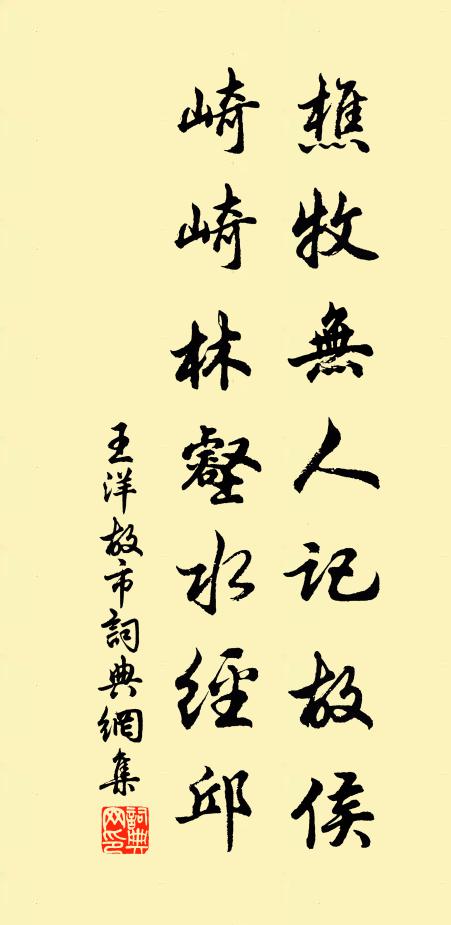 樵牧無人記故侯
崎崎林壑水經邱
王洋故市詞典網集
詞典网印